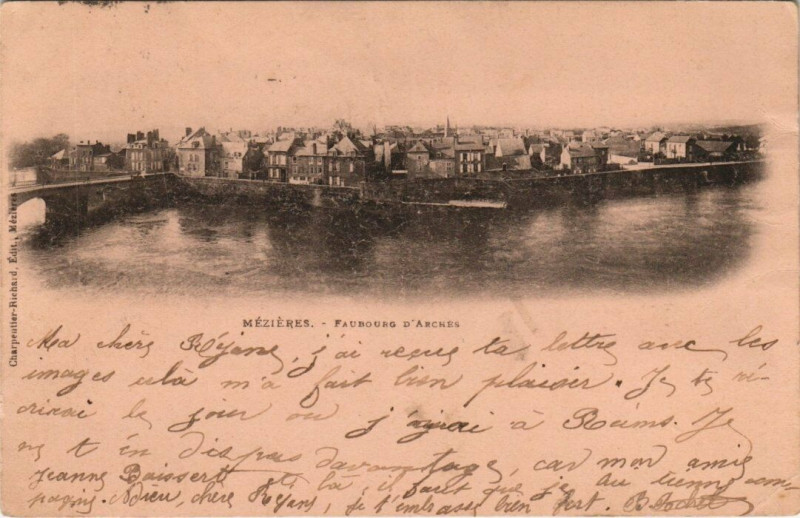 MÉZIÈRES. - FAUBOURG D'ARCHES
Charpentier-Richard, Édit., Mézières
Ma chère Réjane, j'ai reçue ta lettre avec les
images celà m'a fait bien plaisir. Je te ré-
crirai le jour où j'irai à Reims. Je
ne t'en dis pas davantage, car mon amie
Jeanne est là, il faut que je lui tienne com-
pagnie. Adieu, chère Réjane, je t'embrasse bien fort.